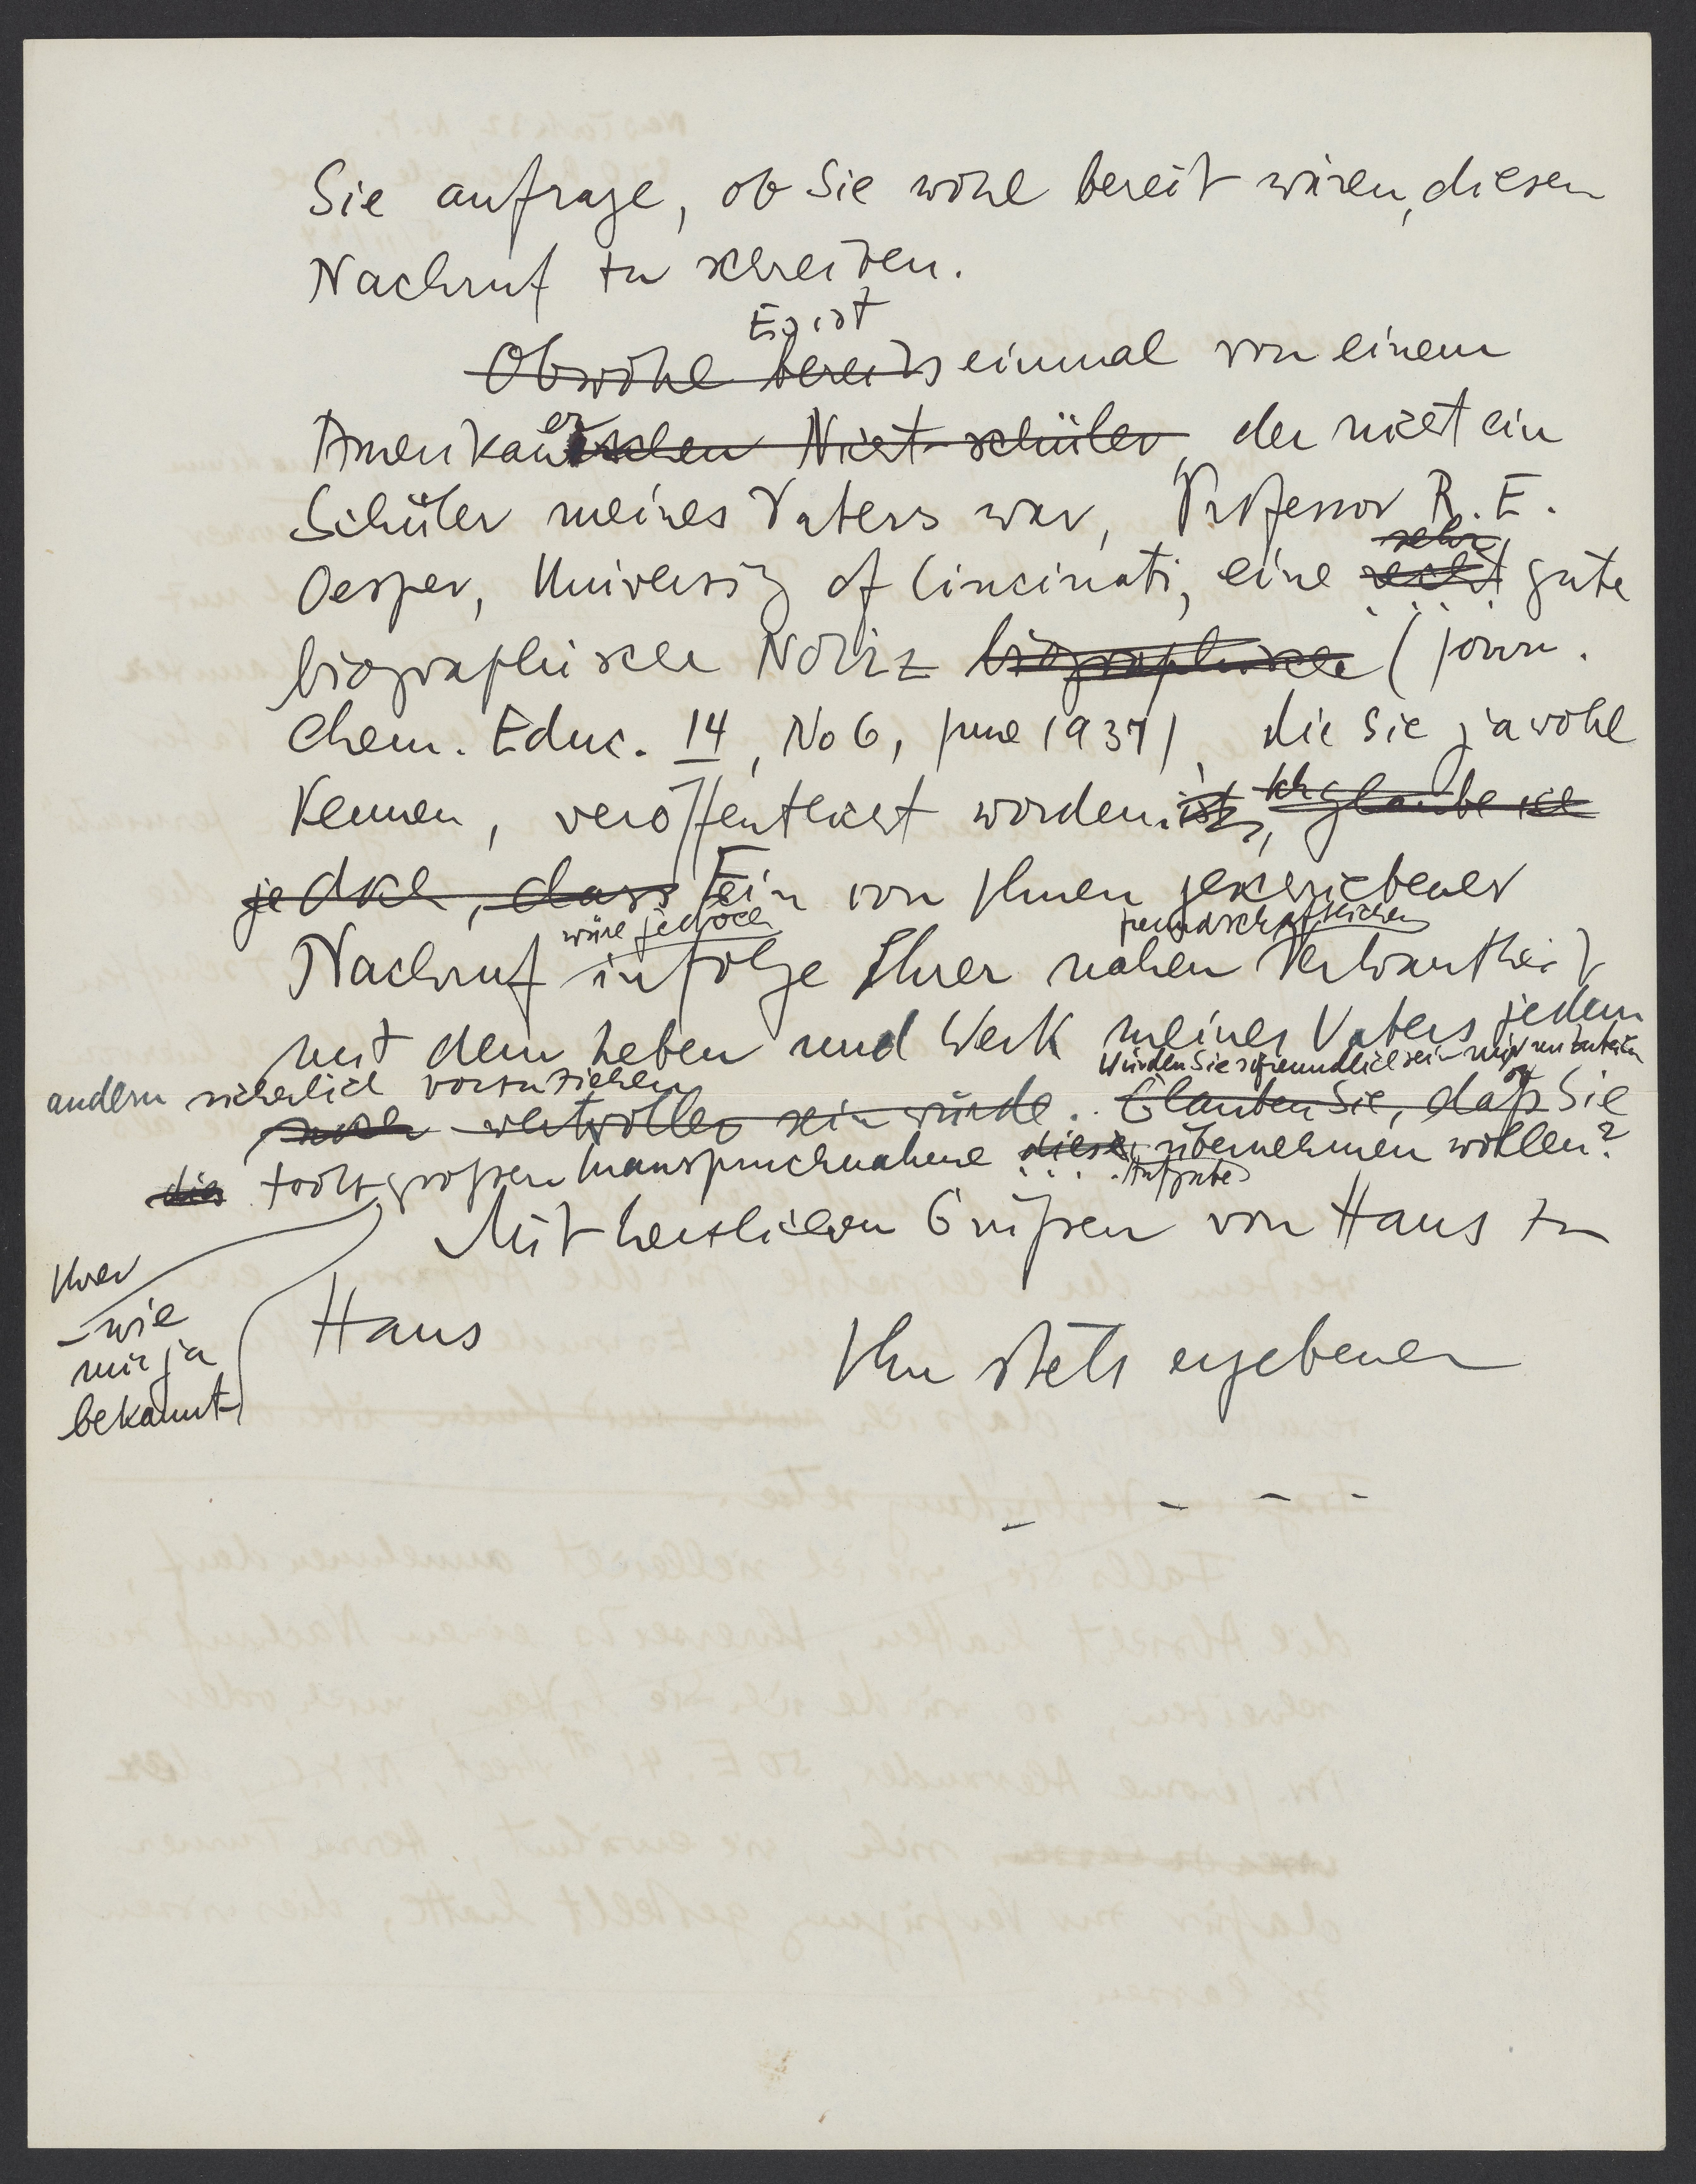 Sie anfrage, ob Sie wohl bereit wären, diesen
Nachruf zu schreiben.
Es ist
Obwohl bereits einmal von einem
Amerikanerischen Nicht-schüler, der nicht ein
Schüler meines Vaters war, Professor R. E.
sehr
Oesper, University of Cincinati, eine recht gute
biographische Notiz biographische (Journ.
Chem. Educ. 14, No 6, June 1937), die Sie ja wohl
kennen, veröffentlicht worden. ist, ich glaube ich
jedoch, dass Ein von Ihnen geschriebener
wäre jedoch freundschaftlichen
Nachruf infolge Ihrer nahen Verwantheit
mit dem Leben und Werk meines Vaters jedem
Würden Sie so freundlich sein mir mitzuteilen
andern sicherlich vorzuziehen
noch wertvoller sein würde. Glauben Sie, daß Sie
ob
dies trotz großen Inanspruchnahme diese übernehmen wollen?
Aufgabe
Mit herzlichen Grüßen von Haus zu
Ihrer
– wie
mir ja
bekannt
Haus
Ihr stets ergebener